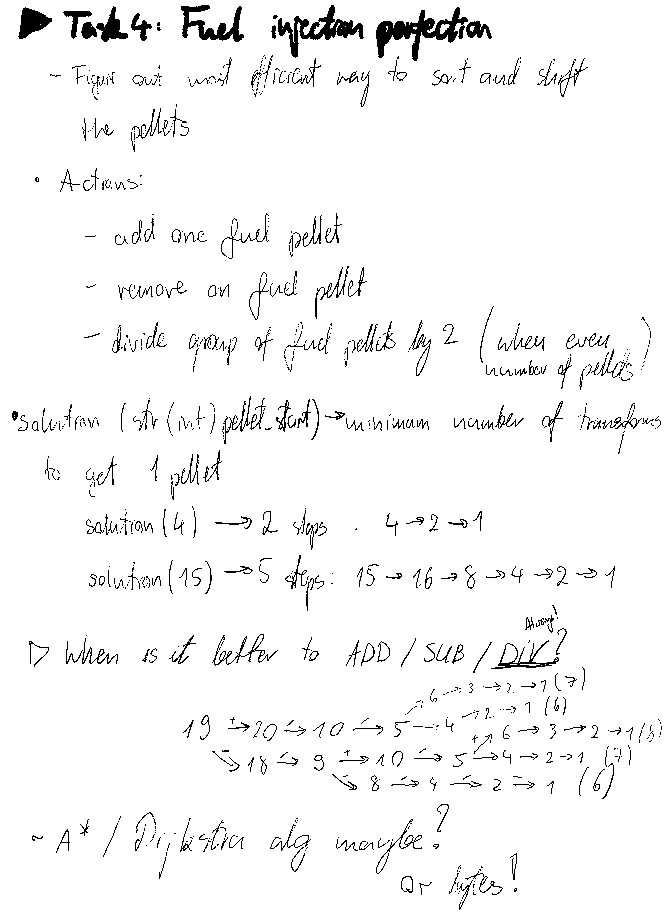 ▶ Task 4: Fuel injection perfection
- Figure out most efficient way to sort and shift
the pellets
• Actions:
- add one fuel pellet
- remove on fuel pellet
- divide group of fuel pellets by 2 (when even
number of pellets)
• solution (str (int) pellet_start) → minimum number of transforms
to get 1 pellet
solution (4) → 2 steps . 4 → 2 → 1
solution (15) → 5 steps: 15 → 16 → 8 → 4 → 2 → 1
Always!
▷ When is it better to ADD / SUB / DIV?
6 → 3 → 2 → 1 (7)
19 → 20 → 10 → 5 → 4 → 2 → 1 (6)
+ 6 → 3 → 2 → 1 (8)
18 → 9 → 10 → 5 → 4 → 2 → 1 (7)
8 → 4 → 2 → 1 (6)
~ A* / Dijkstra alg maybe?
Or bytes!